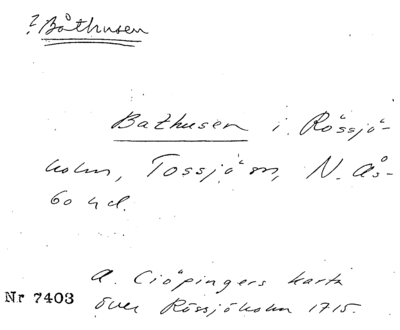 ? Båthusen
Bathusen i Rössjö-
holm, Tossjö sn, N. Ås-
bo hd.
A. Ciöpingers karta
Nr 7403
över Rössjöholm 1715.